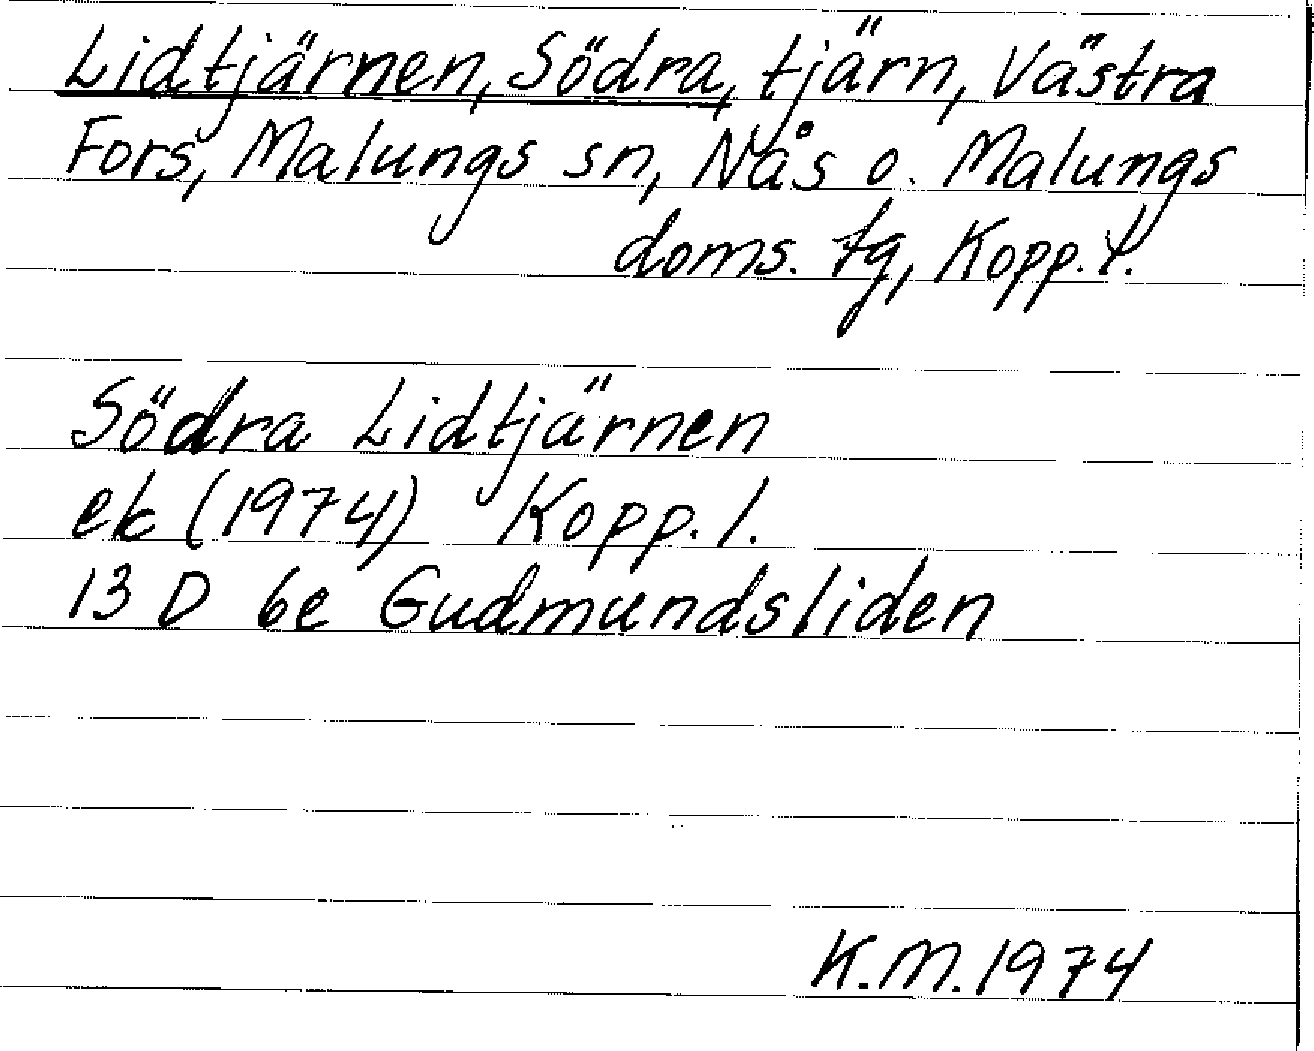 Lidtjärnen, Södra, tjärn, Västra
Fors, Malungs sn, Nås o. Malungs
doms. tg, Kopp. l.
Södra Lidtjärnen
ek (1974) Kopp. l.
13 D 6e Gudmundsliden
K.M. 1974